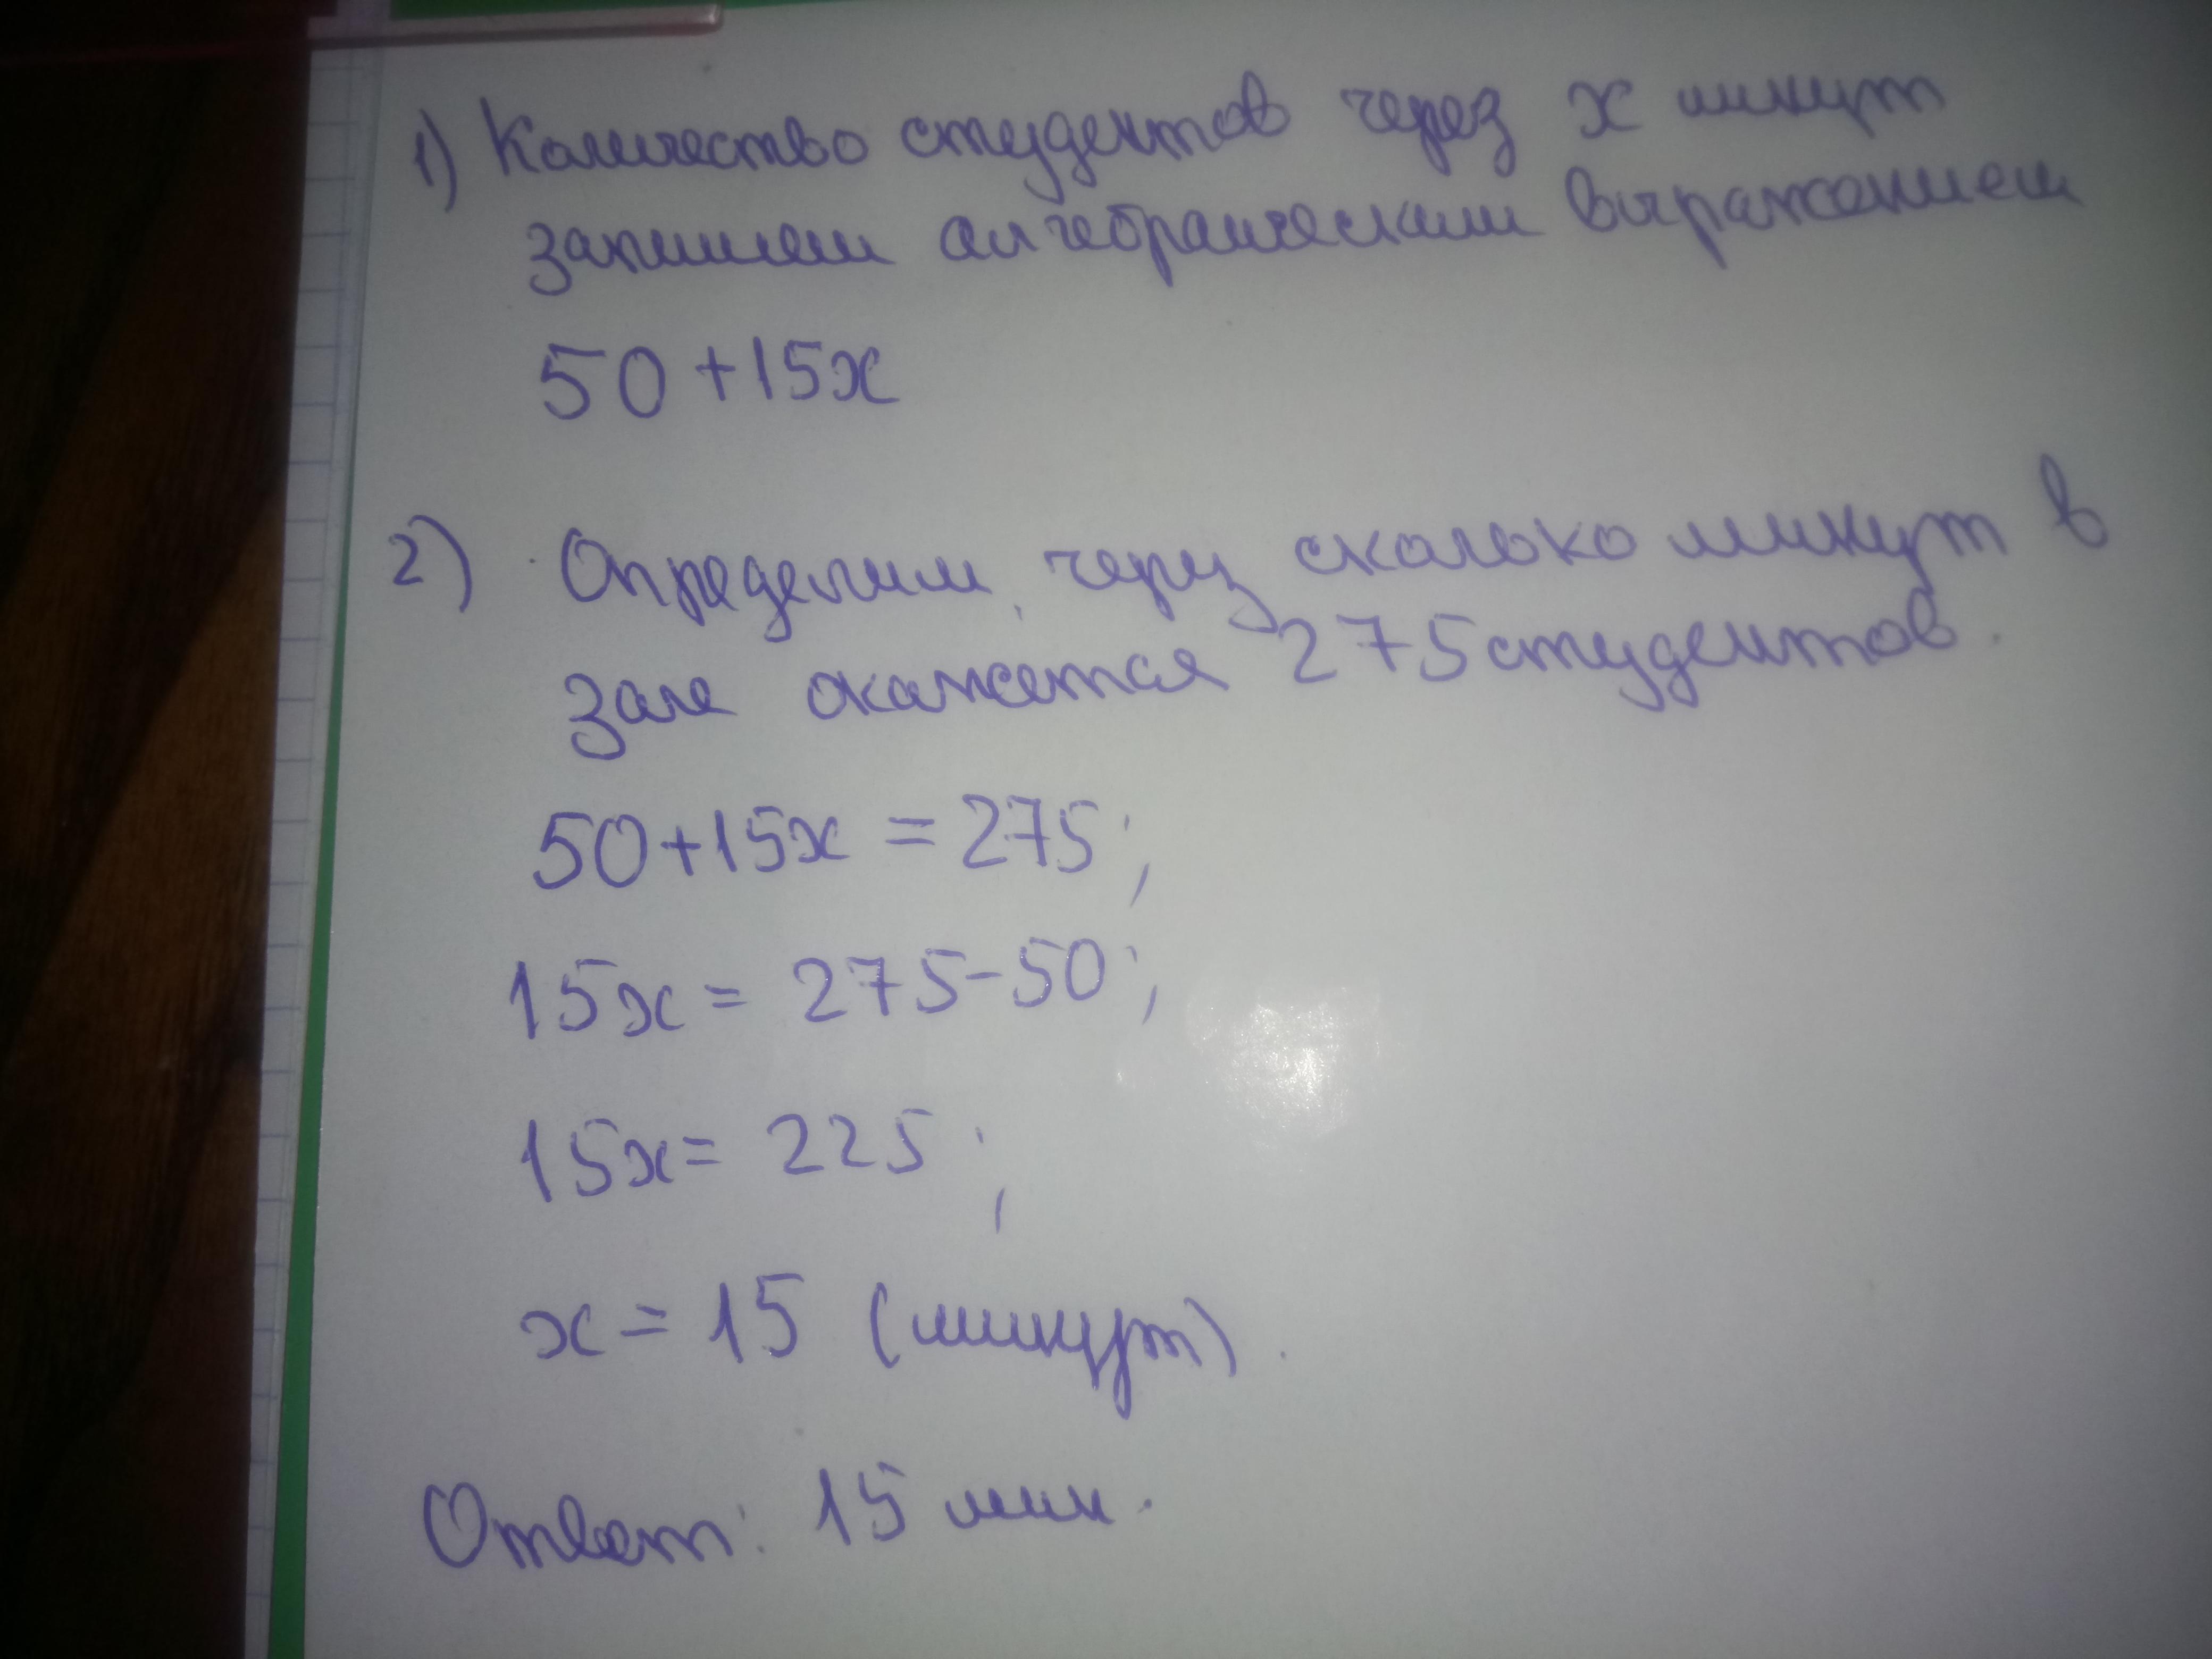 1) Количество студентов через x минут
запишем алгебраическим выражением
50+15x
2) Определим, через сколько минут в
зале окажется 275 студентов.
50+15x = 275;
15x = 275-50;
15x = 225;
x = 15 (минут).
Ответ: 15 мин.